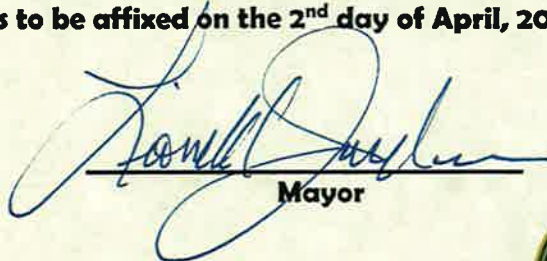 s to be affixed on the 2nd day of April, 20
Mayor